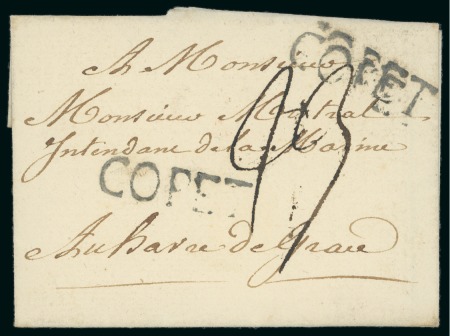 COPET
A Monsieur
Monsieur Mistral
Intendant de la Marine
COPET
Au havre de Grace